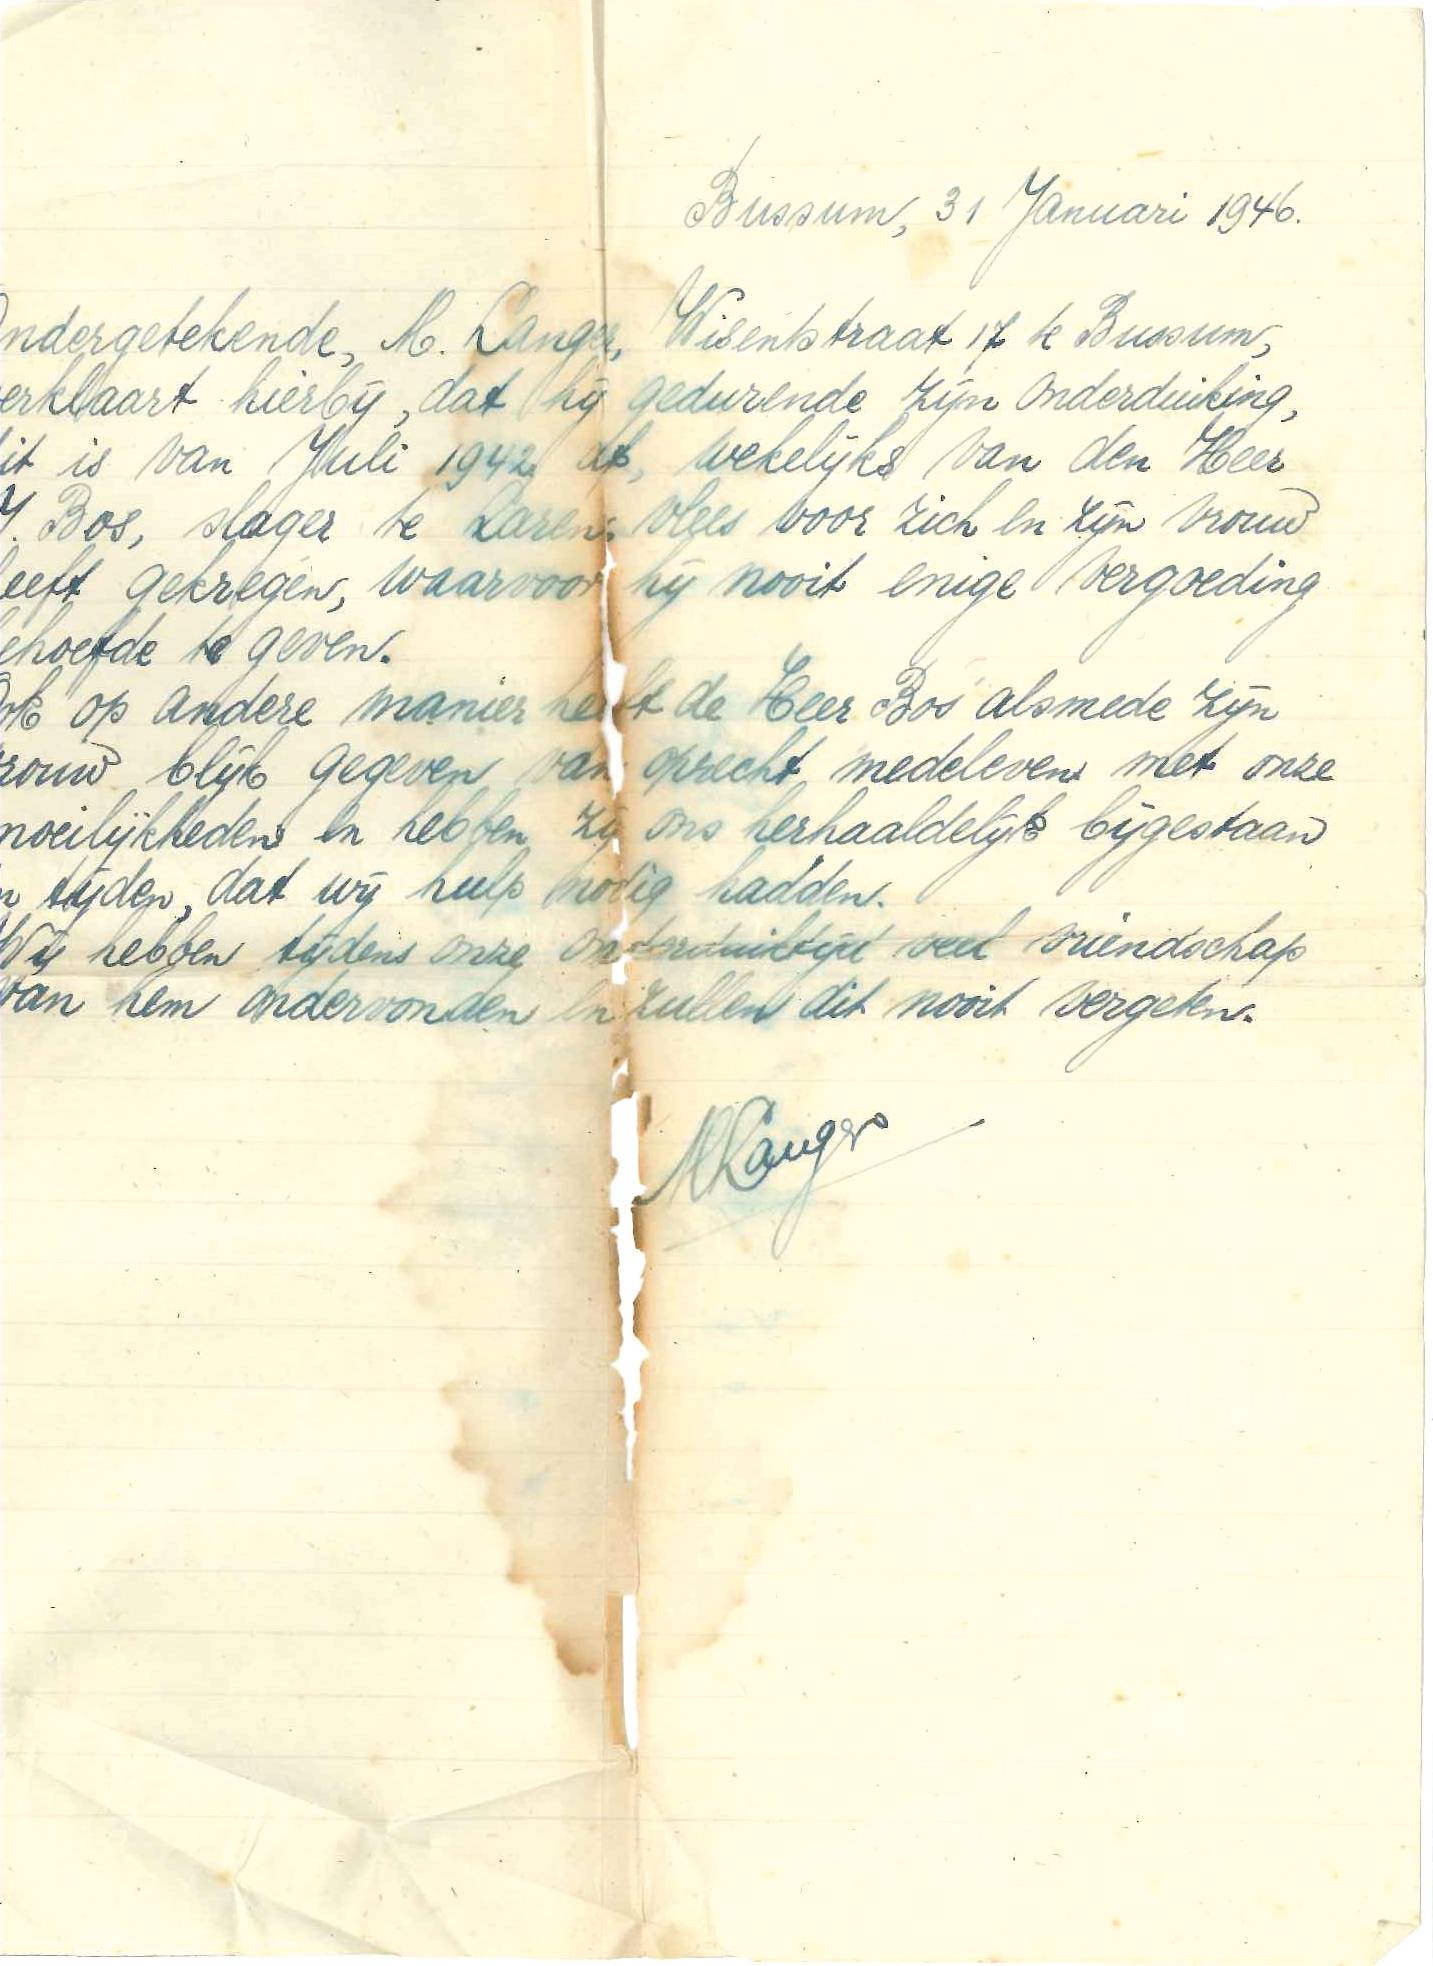 Bussum, 31 Januari 1946.
Ondergetekende, M. Langer, Wisentstraat 17 te Bussum,
erklaart hierbij, dat hij gedurende zijn onderduiking,
it is van Juli 1942 af, wekelijks van den Heer
J. Bos, slager te Laren, vlees voor zich en zijn vrouw
eeft gekregen, waarvoor hij nooit enige vergoeding
ehoefde te geven.
Ook op andere manier heeft de Heer Bos alsmede zijn
rouw blijk gegeven van oprecht medeleven met onze
moeilijkheden en hebben zij ons herhaaldelijk bijgestaan
n tijden, dat wij hulp nodig hadden.
Wij hebben tijdens onze onderduiktijd veel vriendschap
van hem ondervonden en zullen dit nooit vergeten.
MLanger